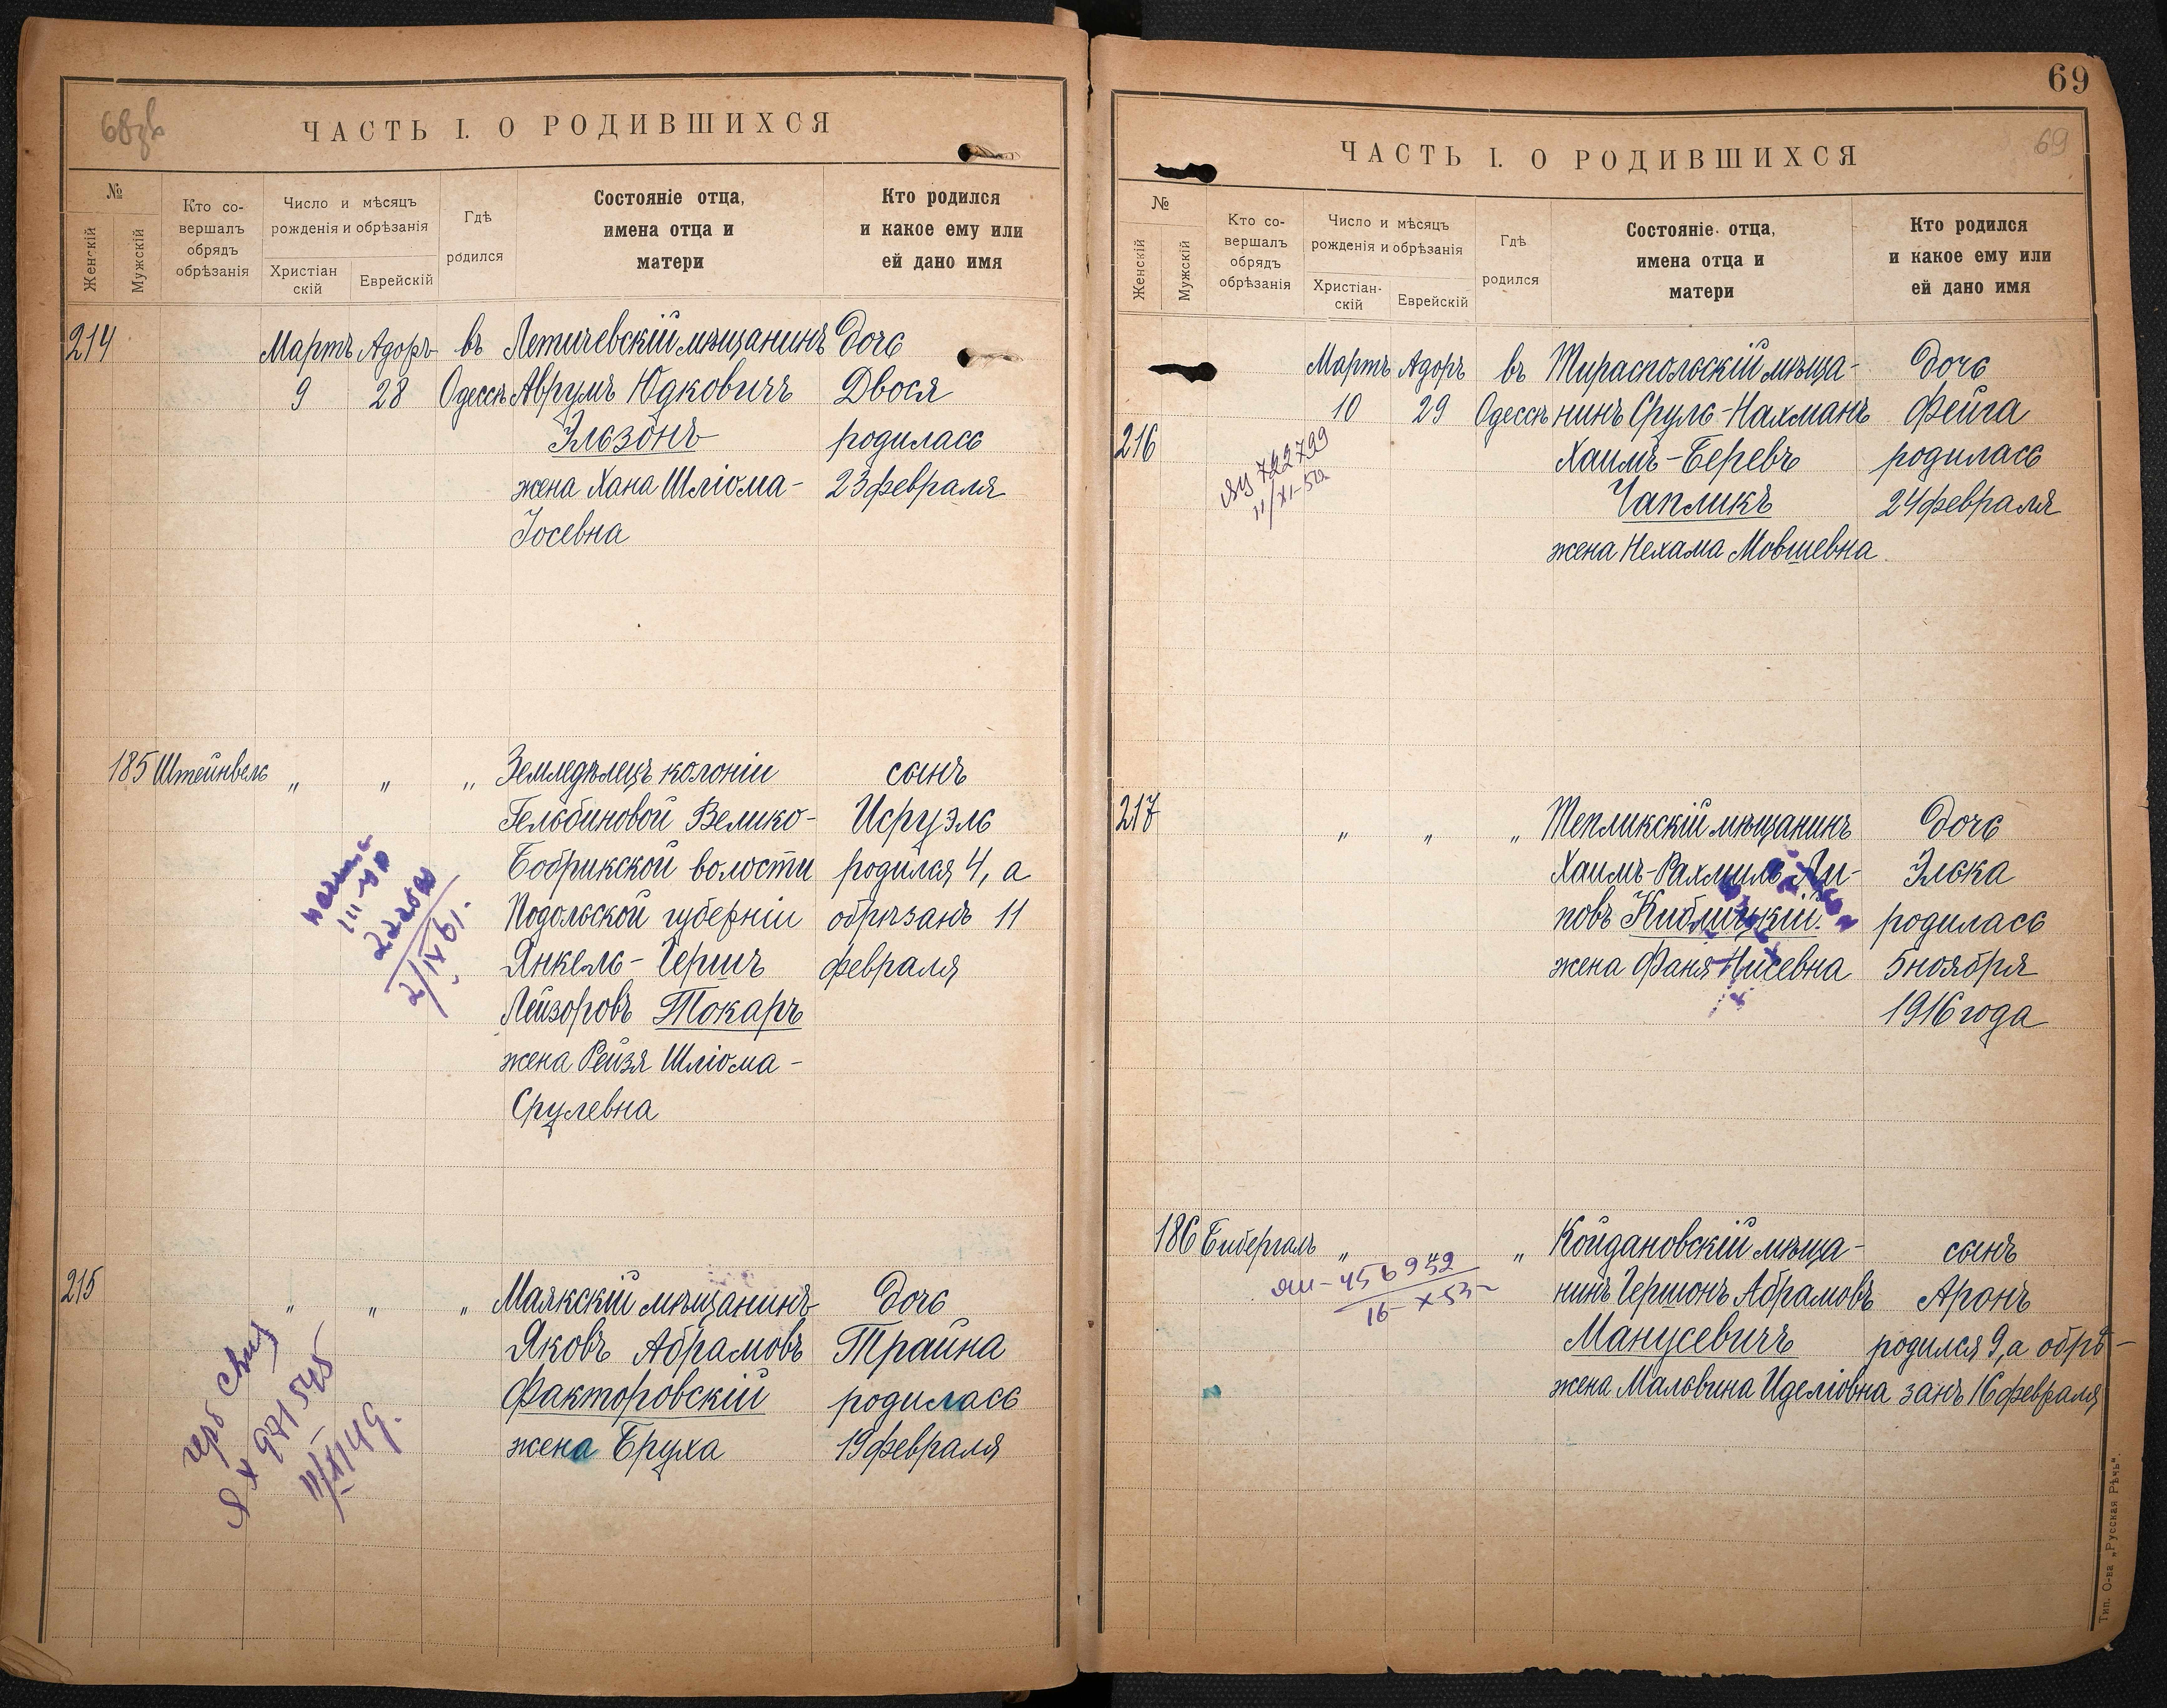 68 зв
ЧАСТЬ I. О РОДИВШИХСЯ
№
Женскій
Мужскій
Кто со-
вершалъ
обрядъ
обрѣзанія
Число и мѣсяцъ
рожденія и обрѣзанія
Христіан
скій
Еврейскій
Гдѣ
родился
Состояніе отца,
имена отца и
матери
Кто родился
и какое ему или
ей дано имя
214 Мартъ Адоръ въ Летичевскій мѣщанинъ дочь
9 28 Одессѣ Аврумъ Юдковичъ Двося
Эльзонъ родилась
жена Хана Шліома- 23 февраля
Іосевна
185 Штейнвель " " " Земледѣлецъ колоніи сынъ
Гельбиновой Велико- Исруэль
Бобрикской волости родился 4, а
Подольской губерніи обрѣзанъ 11
Янкель-Гершъ февраля
Лейзоровъ Токаръ
жена Рейзя Шліома-
Срулевна
2/IV 61.
215 " " " Маякскій мѣщанинъ дочь
Яковъ Абрамовъ Трайна
Факторовскій родилась
жена Бруха 19 февраля
ЯХ 971545
11/II 49.
69
69
ЧАСТЬ I. О РОДИВШИХСЯ
№
Женскій
Мужскій
Кто со-
вершалъ
обрядъ
обрѣзанія
Число и мѣсяцъ
рожденія и обрѣзанія
Христіан-
скій
Еврейскій
Гдѣ
родился
Состояніе отца,
имена отца и
матери
Кто родился
и какое ему или
ей дано имя
Мартъ Адоръ въ Тираспольскій мѣща- дочь
10 29 Одессѣ нинъ Сруль-Нахманъ Фейга
216 Хаимъ-Беревъ родилась
Чапликъ 24 февраля
жена Нехама Мовшевна
722799
11/XI-52
217 " " " Тепликскій мѣщанинъ дочь
Хаимъ-Рахмиль Ли- Элька
повъ Киблицкій. родилась
жена Фаня Нисевна 5 ноября
1916 года
186 Бибергаль " " " Койдановскій мѣща- сынъ
нинъ Гершонъ Абрамовъ Аронъ
Манусевичъ родился 9, а обрѣ-
жена Мальвина Иделіовна занъ 16 февраля
456952
16-X 53
Тип. О-ва „Русская Рѣчь".